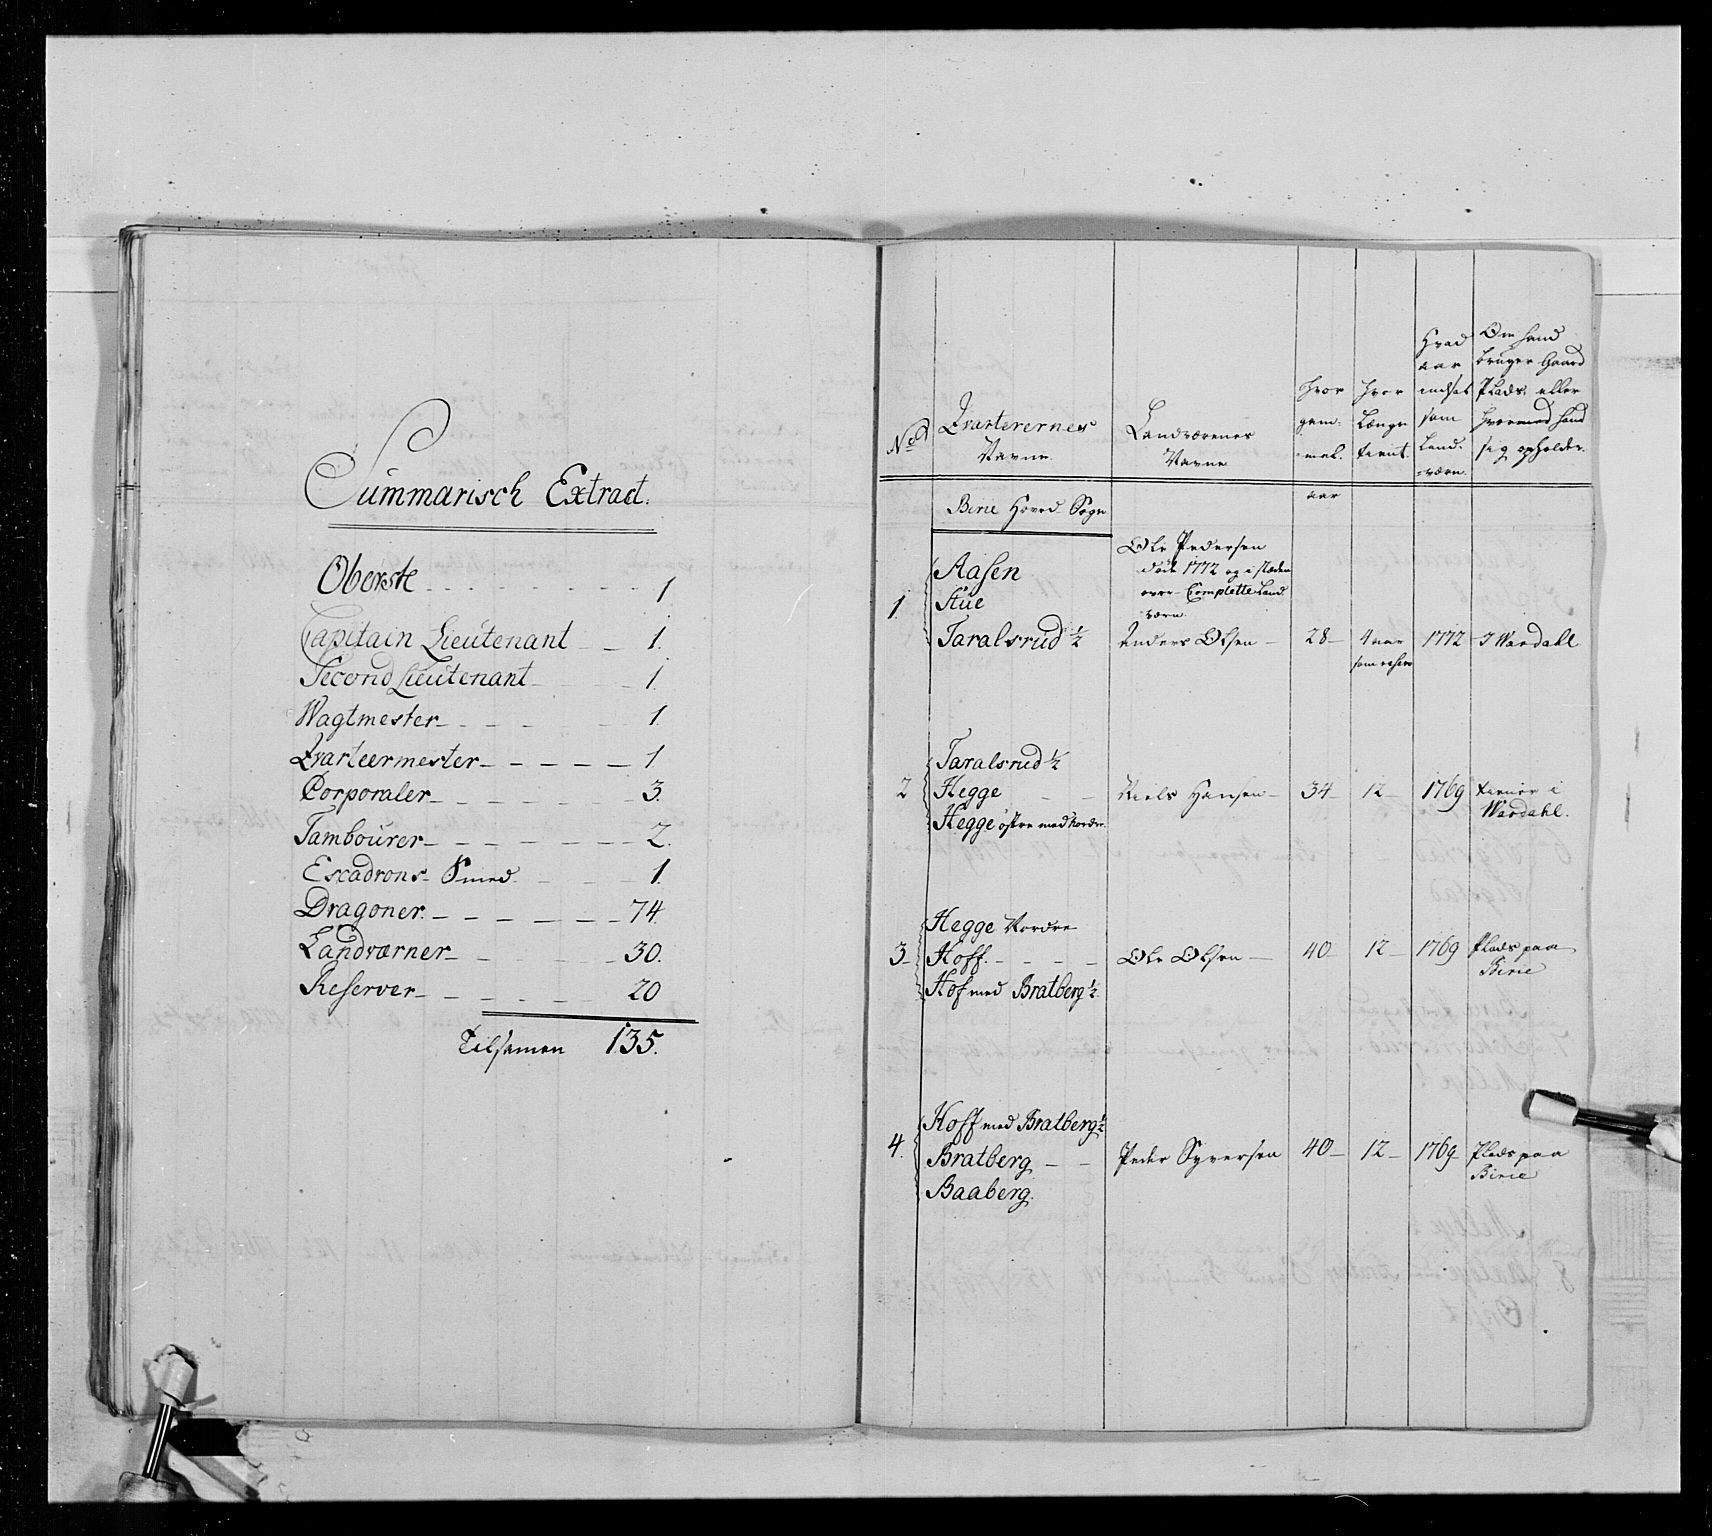 Summarisch Extract.
Oberste 1
Capitain Lieutenant 1.
Second Lieutenant 1.
Wagtmester 1
Qvarteermester 1
Corporaler 3.
Tambourer 2.
Escadrons Smed 1.
Dragoner 74.
Landværner 30.
Reserver 20
Tilsamen 135.
No
Qvarterernes
Navne
Landværnes
Navne
hvor
gam-
mel.
aar
hvor
Længe
tient.
Hvad
aar
indsat
som
Land-
værn.
Om hand
bruger Gaard
Plads. eller
hvormed hand
sig opholder.
Birie Hoved Sogn
1.
Aasen
Stue
Taralsrud ½
Ole Pedersen
døde 1772 og i stæden
over Complette Land
værn.
Anders Olsen 28 4 aar 1772 I Wardahl
som reserv
2
Taralsrud ½
Hegge
Hegge østre med nordre.
Niels Hansen 34 12 1769 tiener i
Wardahl.
3
Hegge Nordre
Hoff.
Hof med Bratberg ½.
Ole Olsen 40 12 1769 Plads paa
Birie
4.
Hoff med Bratberg ½
Bratberg
Baaberg.
Peder Syversen 40 12 1769 Plads paa
Birie